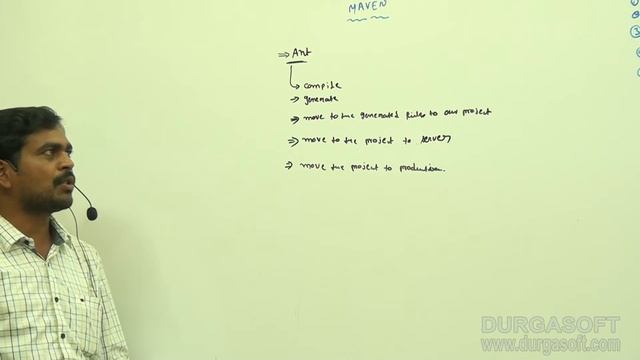 MAVEN
⇒ Ant
→ compile
→ generate
⇒ move to the generated files to our project
⇒ move to the project to server
⇒ move the project to production.
DURGASOFT
www.durgasoft.com